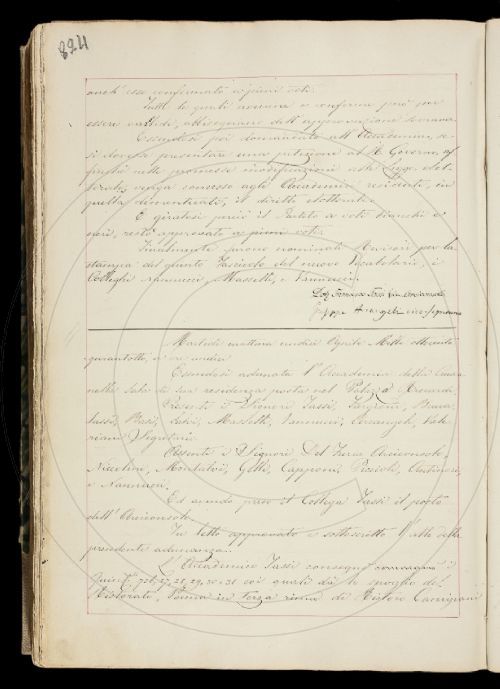 824
anch'esse confermate a pieni voti.
Tutte le quali nomine e conferme però per
essere valide, abbisognano dell'approvazione Sovrana.
Essendosi poi domandato all'Accademia, se
si dovesse presentare una petizione al R. Governo, af
finchè nelle promesse modificazioni alla Legge elet
torale, venga concesso agli Accademici residenti, in
quella dimenticati, il diritto elettorale.
E giratosi perciò il Partito a voti bianchi e
neri, restò approvato a pieni voti.
Finalmente furono nominati Revisori per la
stampa del quinto Fascicolo del nuovo Vocabolario, i
Colleghi Nannucci, Masselli, e Vannucci.
Giuseppe Arcangeli vice-segretario
Martedì mattina undici Aprile Mille ottocento
quarantotto, a ore undici
Essendosi adunata l'Accademia della Crusca
nella Sala di sua residenza posta nel Palazzo Riccardi.
Presenti i Signori Tassi,
Salvi, Masselli, Vannucci, Arcangeli, Vale
riani Segretario
Assenti i Signori Del Furia Arciconsolo,
Niccolini, Montalvi, Gelli, Capponi, Puccioli, Antinori,
e Nannucci.
Ed avendo preso il Collega Tassi il posto
dell'Arciconsolo.
Fu letto approvato e sottoscritto l'atto della
precedente adunanza.
L'Accademico Tassi consegnò i
Quint. 726, 27, 28, 29, 30 e 31 coi quali dà lo spoglio del
Ristorato, Poema in terza rima di Ristoro Canigiani